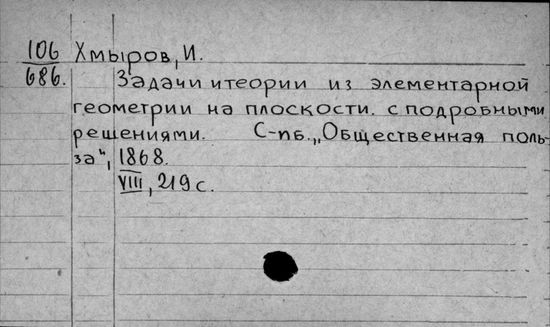 106 Хмыров, И.
686. Задачи и теории из элементарной
геометрии на плоскости. с подробными
решениями. С-пб. „Общественная поль-
за", 1868.
VIII, 219 с.